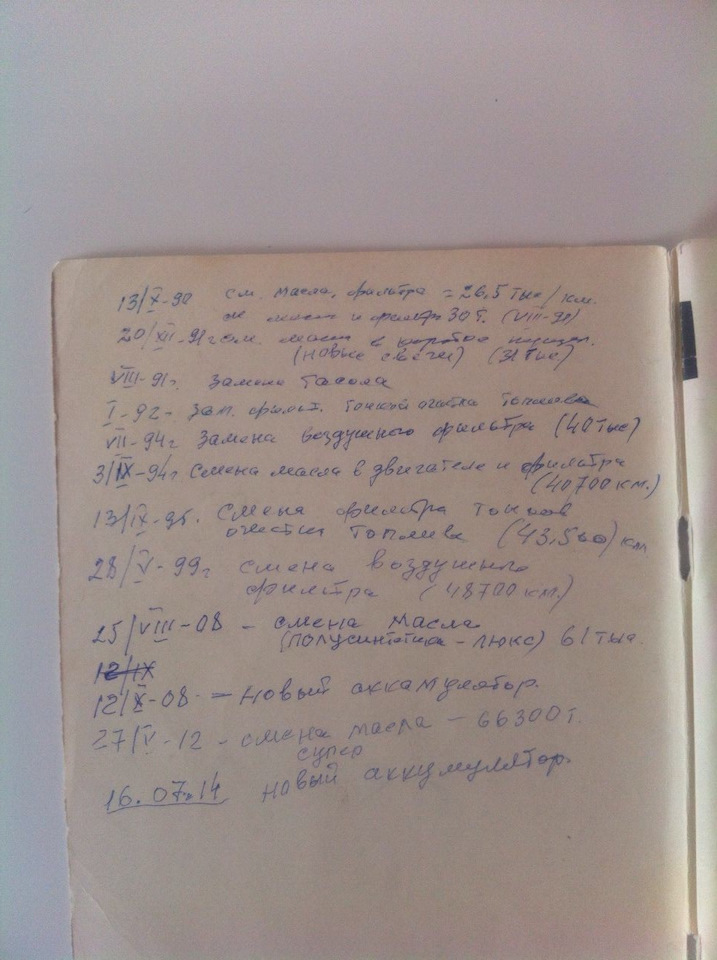 13/X-90 см. масла, фильтра = 26,5 тыс/км.
масл и фильтр 30 т. (VIII-91)
20/XII-91г см. масл в коробке
(новые свечи) (31 тыс)
VIII-91г. Замена Тасола
I-92- Зам. фильт. тонкой очистки топлива
VII-94г Замена воздушного фильтра (40 тыс)
3/IX-94г Смена масла в двигателе и фильтра
(40700 км.)
13/IX-95. Смена фильтра тонкой
очистки топлива (43,500) км
28/V-99г смена воздушного
фильтра (48700 км.)
25/VIII-08 - смена масла
(полусинтетика - люкс) 61 тыс.
12/IX
12/X-08 - новый аккамулятор.
27/V-12 - смена масла - 66300 т.
супер
16.07.14 новый аккумулятор.